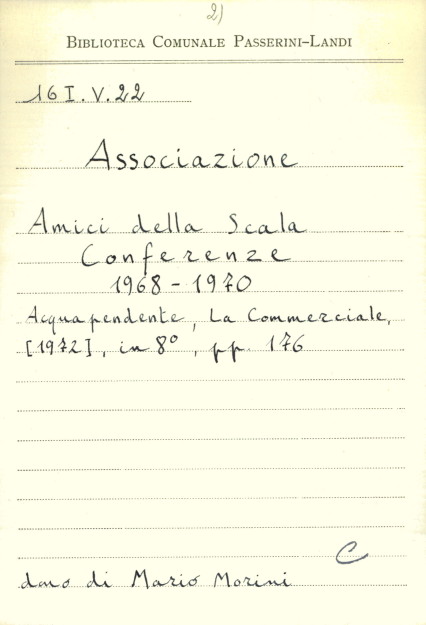 2)
BIBLIOTECA COMUNALE PASSERINI-LANDI
16 I.V.22
Associazione
Amici della Scala
Conferenze
1968-1970
Acquapendente, La Commerciale,
[1972], in 8°, pp. 176
C
dono di Mario Morini